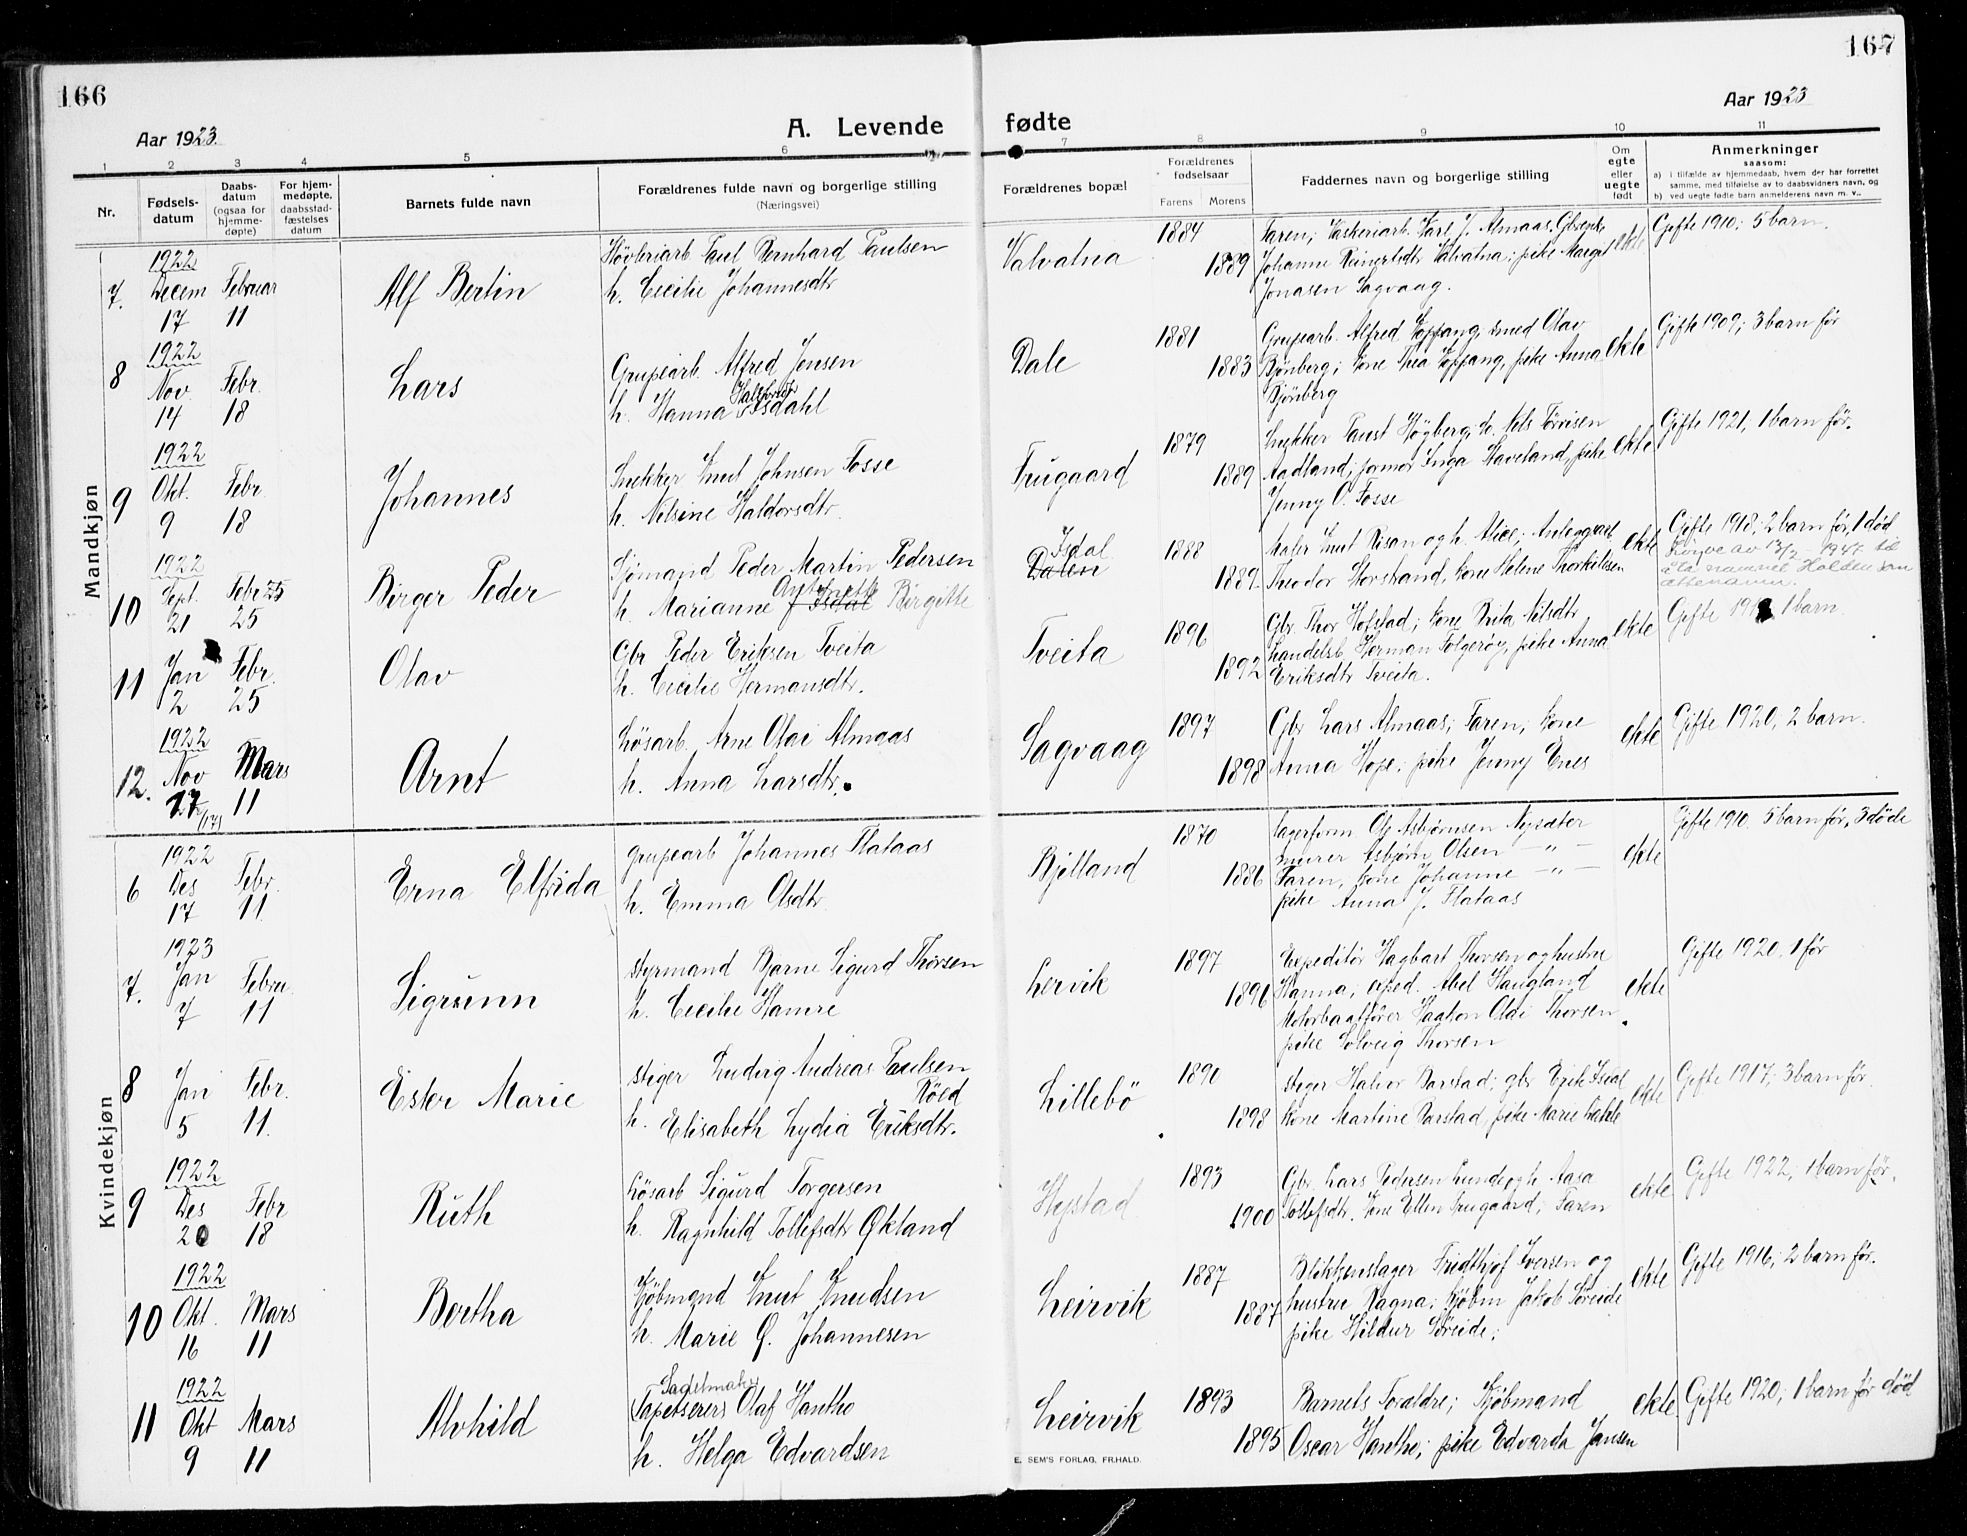 166
167
Aar 1923.
A. Levende fødte
Aar 1923
1 2 3 4 5 6 7 8 9 10 11
Nr.
Fødsels-
datum
Daabs-
datum
(ogsaa for
hjemme-
døpte)
For hjem-
medøpte,
daabsstad-
fæstelses
datum
Barnets fulde navn
Forældrenes fulde navn og borgerlige stilling
(Næringsvei)
Forældrenes bopæl
Forældrenes
fødselsaar
Farens Morens
Faddernes navn og borgerlige stilling
Om
egte
eller
uegte
født
Anmerkninger
saasom:
a) i tilfælde av hjemmedaab, hvem der har forrettet
samme, med tilføielse av to daabsvidners navn, og
b) ved uegte fødte barn anmelderens navn m. v..
Mandkjøn
7.
1922
Decem
17
Februar
11
Alf Bertin
Paul Bernhard Paulsen
h. Cecilie Johannesdtr
Valvatna
1884
1889
Faren; Vaskeriarb. Karl J. Almaas,
Johanne Reinertsdtr Valvatna; pike Margit
Jonasen Sagvaag.
ekte
Gifte 1910; 5 barn.
8
1922
Nov.
14
Febr.
18
Lars
Grupearb. Alfred Jensen
h. Hanna Isdahl
Dale
1881
1883
Grupearb. Alfred Koppang, smed Olav
Bjönberg; kone Thea Koppang, pike Anna
Bjönberg
ekte
Gifte 1909; 3 barn før
9
1922
Okt.
9
Febr.
18
Johannes
Snekker Knut Johnsen Fosse
h. Nilsine Haldorsdtr.
Trugaard
1879
1889
Snekker Högberg, Nils
Aadland; formor Inga Staveland, pike
Jenny O. Fosse
ekte
Gifte 1921, 1 barn før.
10
1922
Sept.
21
Febr 25
25
Birger Peder
Sjömand Peder Martin Pedersen
Antonette
h. Marianne Isdal Birgitte
Isdal
Dalen
1888
1889.
Maler Knut Risan og h. Alice; Anleggsarb
Theodor Storstrand, kone Helene Thorkildsen
ekte
Gifte 1918; 2 barn før, 1 död
Løyve av 13/2 - 1947 til
å ta namnet Halden som
ættenamn.
11
Jan
2
Febr.
25
Olav
Gbr Peder Eriksen Tveita
h. Cecilie Hermansdtr.
Tveita
1896
1892
Gbr. Thor Hofstad; kone Brita Nilsdtr
Handelsb Herman Folgerøy, pike Anna
Eriksdtr Tveita.
ekte
Gifte 1 barn.
12.
1922
Nov
17
Mars
11
Arnt
Lösarb. Arne Olai Almaas
h. Anna Larsdtr.
Sagvaag
1897
1898
Gbr Lars Almaas; Faren; kone
Anna Hope; pike Jenny Enes
ekte
Gifte 1920, 2 barn.
Kvindekjøn
6
1922
Des
17
Febr.
11
Erna Elfrida
Grupearb Johannes Flataas
h. Emma Olsdtr
Bjelland
1870
1886
Lagerform Ole Asbjørnsen Nysæter
murer Asbjørn Olsen - " -
Faren, kone Johanne - " -
pike Anna J. Flataas
ekte
Gifte 1910. 5 barn før, 3 døde
7.
1923
Jan
7
Febru.
11
Sigrunn
styrmand Bjarne Sigurd Thorsen
h. Cecilie Hamre
Lervik
1897
1896
Expeditör Hagbart Thorsen og hustru
Hanna, exped. Abel Haugland
Motorbaatfører Haakon Olai Thorsen
pike Solveig Thorsen
ekte
Gifte 1920. 1 før
8
Jan
5
Febr.
11.
Ester Marie
stiger Ludvig Andreas Paulsen
Röed
h. Elisabeth Lydia Eriksdtr.
Lillebö
1890
1898
stiger Halvor Barstad; gbr Erik Isdal
kone Martine Barstad, pike Marie
ekte
Gifte 1917; 3 barn før
9
1922
Des
20
Febr
18
Ruth
Lösarb Sigurd Torgersen
h. Ragnhild Tollefsdtr Økland
Hystad
1893
1900
Gbr. Lars Pedersen Lunde og h. Aasa
Tollefsdtr. Kone Ellen Trugaard; Faren
ekte
Gifte 1922; 1 barn før.
10
1922
Okt.
16
Mars
11
Bertha
Kjöbmand Knut Knudsen
h. Marie G. Johannesen
Leirvik
1887
1887
Blikkenslager Fridthjof Iversen og
hustru Ragna; Kjöbm Jakob Söreide
pike Hildur Söreide;
ekte
Gifte 1916; 2 barn før.
11
1922
Okt
9
Mars
11
Alvhild
Sadelmaker
Tapetserer Olaf Hanthe
h. Helga Edvardsen
Leirvik
1893
1895
Barnets Foraldre; Kjöbmand
Oscar Hanthe; pike Edvarda Jansen
ekte
Gifte 1920; 1 barn før död
E. SEM'S FORLAG, FR.HALD.